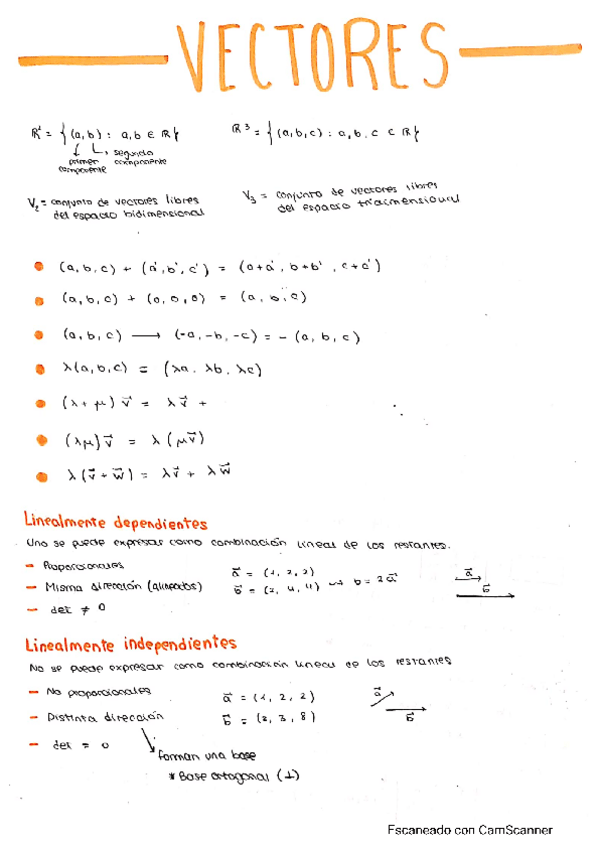 VECTORES
R² = { (a,b) : a,b ∈ R }
primer componente
segunda componente
R³ = { (a,b,c) : a,b,c ∈ R }
V₂ = conjunto de vectores libres
del espacio bidimensional
V₃ = conjunto de vectores libres
del espacio tridimensional
(a,b,c) + (a',b',c') = (a+a', b+b', c+c')
(a,b,c) + (0,0,0) = (a,b,c)
(a,b,c) → (-a,-b,-c) = - (a,b,c)
λ(a,b,c) = (λa, λb, λc)
(λ+μ) v⃗ = λv⃗ +
(λμ)v⃗ = λ(μv⃗)
λ(v⃗ + w⃗) = λv⃗ + λw⃗
Linealmente dependientes
Uno se puede expresar como combinación lineal de los restantes.
- Proporcionales
a⃗ = (1, 2, 2)
- Misma dirección (alineados)
b⃗ = (2, 4, 4) → b = 2a⃗
a⃗
b⃗
- det ≠ 0
Linealmente independientes
No se puede expresar como combinación lineal de los restantes
- No proporcionales
a⃗ = (1, 2, 2)
a⃗
- Distinta dirección
b⃗ = (2, 3, 8)
b⃗
- det = 0
forman una base
* Base ortogonal (⊥)
Escaneado con CamScanner